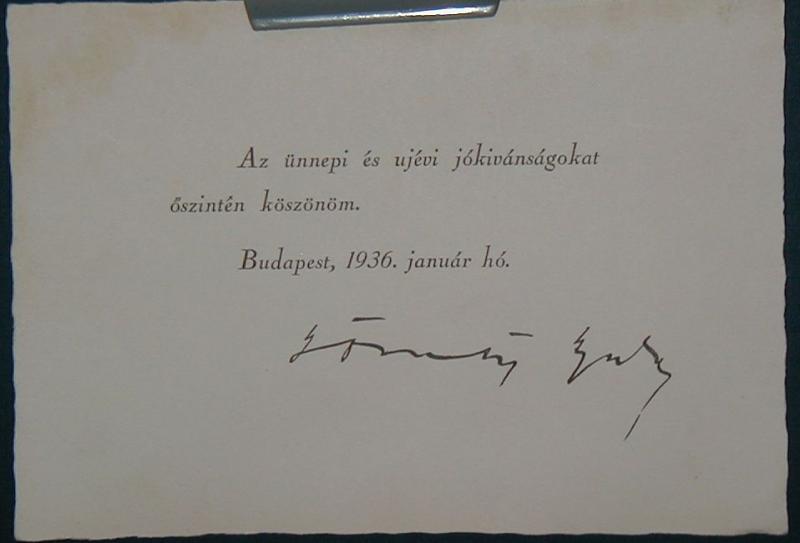 Az ünnepi és ujévi jókivánságokat
őszintén köszönöm.
Budapest, 1936. január hó.
Gömbös Gyula